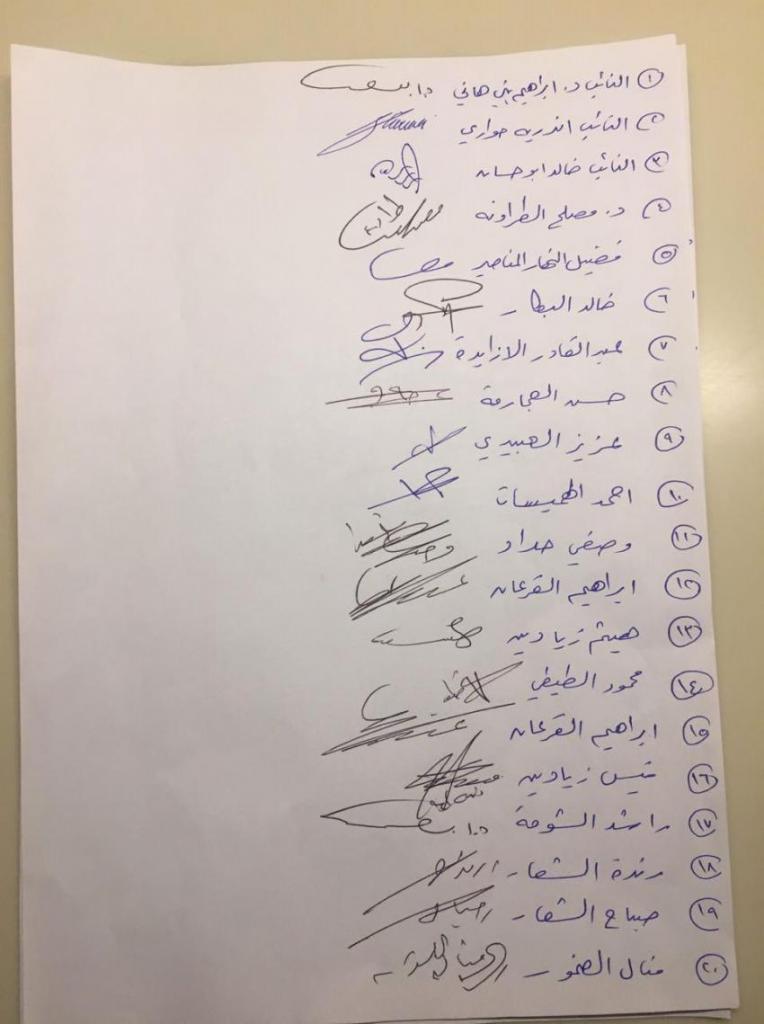 ١ النائب د. ابراهيم بني هاني
٢ النائب اندريه حواري
٣ النائب خالد ابو حسان
٤ د. مصلح الطراونه
٥ فضيل النهار المناصير
٦ خالد البطار
٧ عبد القادر الازايدة
٨ حسن العجارمة
٩ عزيز العبيدي
١٠ احمد الهميسات
١١ وصفي حداد
١٢ ابراهيم القرعان
١٣ هيثم زيادين
١٤ محمود الطيطي
١٥ ابراهيم القرعان
١٦ قيس زيادين
١٧ راشد الشوحة
١٨ رندة الشعار
١٩ صباح الشعار
٢٠ منال الضمور